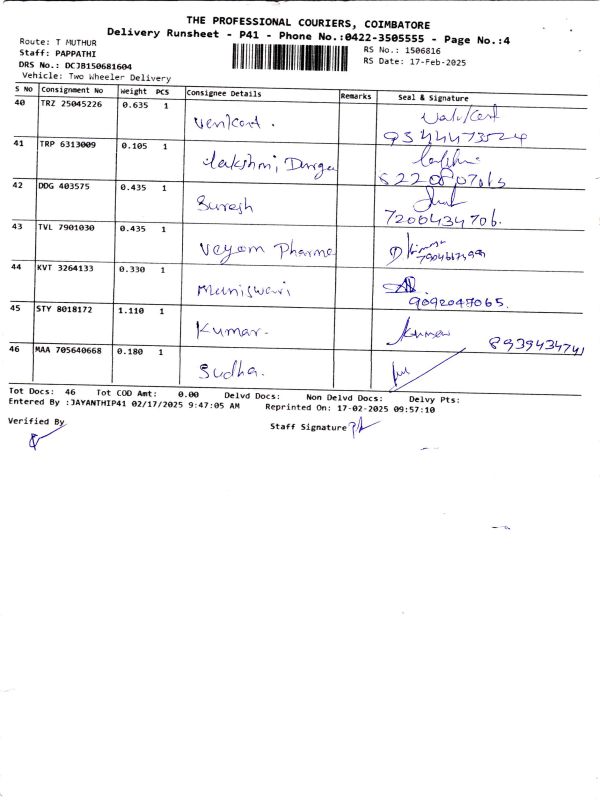 THE PROFESSIONAL COURIERS, COIMBATORE
Delivery Runsheet - P41 - Phone No.:0422-3505555 - Page No.:4
Route: T MUTHUR
RS No.: 1506816
Staff: PAPPATHI
RS Date: 17-Feb-2025
DRS No.: DCJB150681604
Vehicle: Two Wheeler Delivery
S No Consignment No Weight PCS Consignee Details Remarks Seal & Signature
40 TRZ 25045226 0.635 1
Venkat.
9344473524
41 TRP 6313009 0.105 1
Lakshmi, Durga
42 DDG 403575 0.435 1
Suresh
7200434706.
43 TVL 7901030 0.435 1
Veyom Pharma
44 KVT 3264133 0.330 1
Muniswari
9092047065.
45 STY 8018172 1.110 1
Kumar.
Kumar
8939434741
46 MAA 705640668 0.180 1
Sudha.
Tot Docs: 46 Tot COD Amt: 0.00 Delvd Docs: Non Delvd Docs: Delvy Pts:
Entered By :JAYANTHIP41 02/17/2025 9:47:05 AM Reprinted On: 17-02-2025 09:57:10
Verified By
Staff Signature